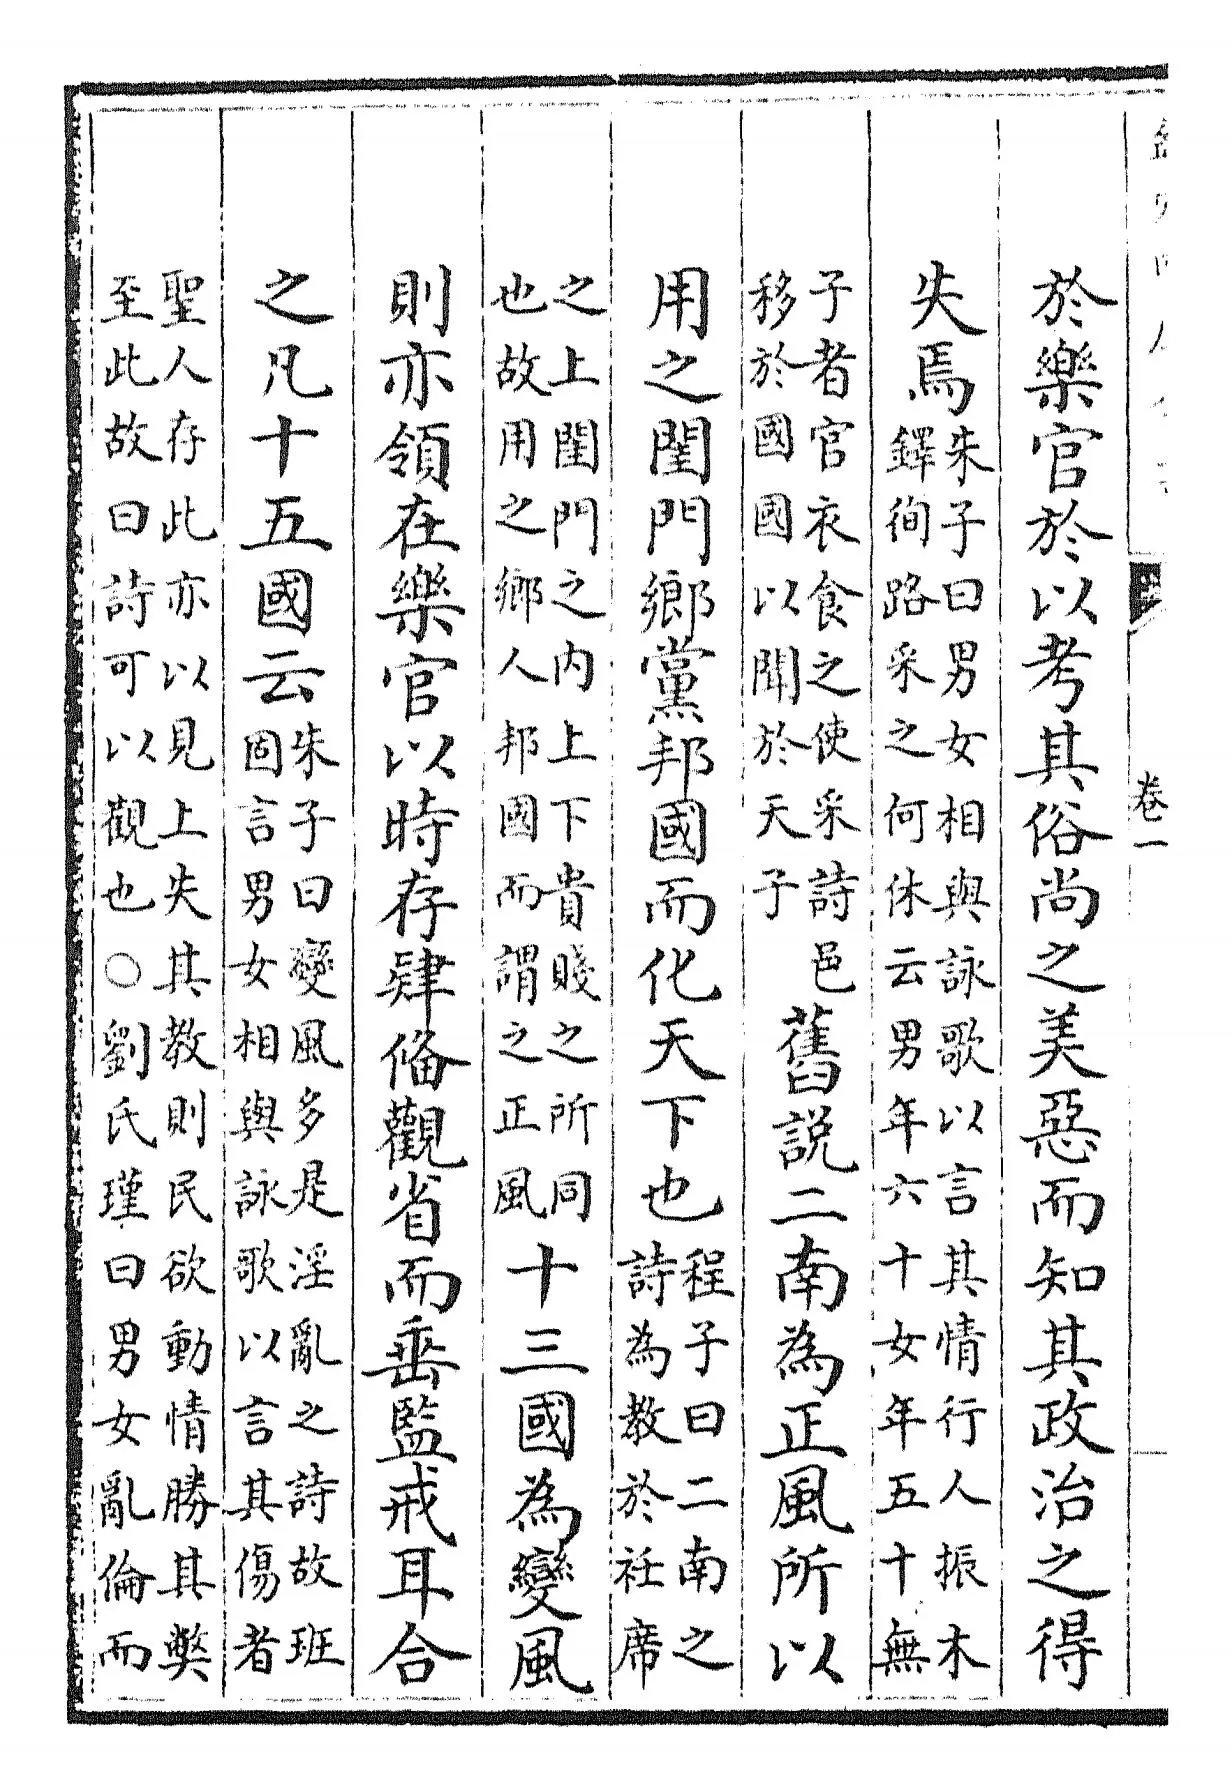 卷一
於樂官於以考其俗尚之美惡而知其政治之得
失焉朱子曰男女相與詠歌以言其情行人振木
鐸徇路采之何休云男年六十女年五十無
子者官衣食之使采詩邑
移於國國以聞於天子舊説二南為正風所以
用之閨門鄉黨邦國而化天下也程子曰二南之
詩為教於衽席
之上閨門之内上下貴賤之所同
也故用之鄉人邦國而謂之正風十三國為變風
則亦領在樂官以時存肄俻觀省而垂監戒耳合
之凡十五國云朱子曰變風多是淫亂之詩故班
固言男女相與詠歌以言其傷者
聖人存此亦以見上失其教則民欲動情勝其弊
至此故曰詩可以觀也○劉氏瑾曰男女亂倫而